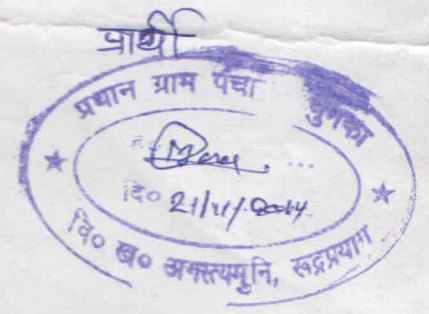 प्रार्थी
प्रधान ग्राम पंचा
दि० 21/11/2014
वि० ख० अगस्त्यमुनि, रूद्रप्रयाग